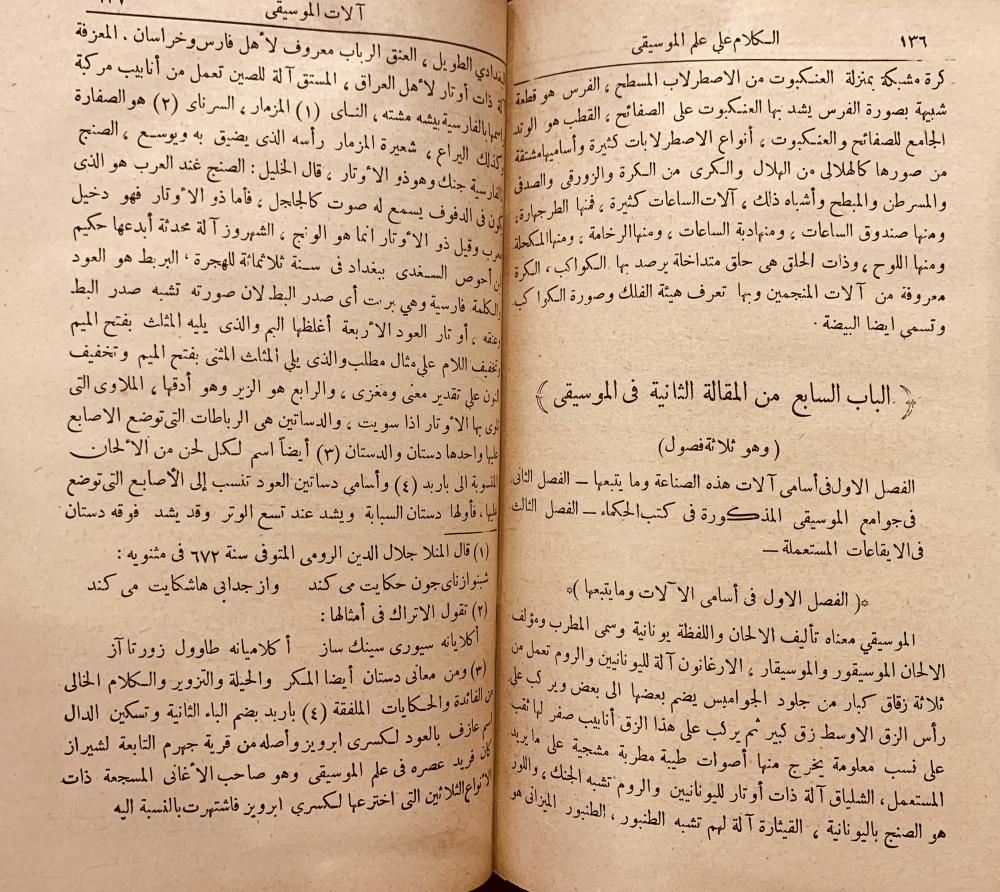 ١٣٦
الكلام علي علم الموسيقى
كرة مشبكة بمنزلة العنكبوت من الاصطرلاب المسطح ، الفرس هو قطعة
شبيهة بصورة الفرس يشد بها العنكبوت على الصفائح ، القطب هو الوتد
الجامع للصفائح والعنكبوت ، أنواع الاصطرلابات كثيرة وأساميها مشتقة
من صورها كالهلالى من الهلال والكرى من الكرة والزورقى والصدفى
والمسرطن والمبطح وأشباه ذلك ، آلات الساعات كثيرة ، فمنها الطرجهارة،
ومنها صندوق الساعات ، ومنها دبة الساعات ، ومنها الرخامة ، ومنها المكحلة
ومنها اللوح ، وذات الحلق هى حلق متداخلة يرصد بها الكواكب ، الكرة
معروفة من آلات المنجمين وبها تعرف هيئة الفلك وصورة الكواكب
وتسمى ايضا البيضة ·
﴿ الباب السابع من المقالة الثانية فى الموسيقى ﴾
( وهو ثلاثة فصول )
الفصل الاول فى أسامى آلات هذه الصناعة وما يتبعها — الفصل الثانى
فى جوامع الموسيقى المذكورة فى كتب الحكماء — الفصل الثالث
فى الايقاعات المستعملة —
*( الفصل الاول فى أسامى الآلات وما يتبعها )*
الموسيقي معناه تأليف الالحان واللفظة يونانية وسمى المطرب ومؤلف
الالحان الموسيقور والموسيقار ، الارغانون آلة لليونانيين والروم تعمل من
ثلاثة زقاق كبار من جلود الجواميس يضم بعضها الى بعض ويركب على
رأس الزق الاوسط زق كبير ثم يركب على هذا الزق أنابيب صفر لها ثقب
على نسب معلومة يخرج منها أصوات طيبة مطربة مشجية على ما يريد
المستعمل ، الشلياق آلة ذات أوتار لليونانيين والروم تشبه الجنك ، واللور
هو الصنج باليونانية ، القيثارة آلة لهم تشبه الطنبور ، الطنبور الميزانى هو
آلات الموسيقى
البغدادي الطويل ، العنق الرباب معروف لأهل فارس وخراسان . المعزفة
آلة ذات أوتار لأهل العراق ، المستق آلة للصين تعمل من أنابيب مركبة
واسمها بالفارسية بيشه مشته ، الناى (١) المزمار ، السرناى (٢) هو الصفارة
وكذلك اليراع ، شعيرة المزمار رأسه الذى يضيق به ويوسع ، الصنج
بالفارسية جنك وهو ذو الأوتار ، قال الخليل : الصنج عند العرب هو الذى
يكون فى الدفوف يسمع له صوت كالجلجل ، فأما ذو الأوتار فهو دخيل
معرب وقيل ذو الأوتار انما هو الونج ، الشهروز آلة محدثة أبدعها حكيم
بن أحوص السغدى ببغداد فى سنة ثلاثمائة للهجرة ، البربط هو العود
والكلمة فارسية وهى بربت أى صدر البط لان صورته تشبه صدر البط
وعنقه ، أوتار العود الأربعة أغلظها البم والذى يليه المثلث بفتح الميم
وتخفيف اللام علي مثال مطلب والذى يلي المثلث المثنى بفتح الميم وتخفيف
النون علي تقدير معنى ومغزى ، والرابع هو الزير وهو أدقها ، الملاوى التى
تلوى بها الأوتار اذا سويت ، والدساتين هى الرباطات التى توضع الاصابع
عليها واحدها دستان والدستان (٣) أيضاً اسم لكل لحن من الألحان
المنسوبة الى باربد (٤) وأسامي دساتين العود تنسب إلى الأصابع التى توضع
عليها ، فأولها دستان السبابة ويشد عند تسع الوتر وقد يشد فوقه دستان
(١) قال المنلا جلال الدين الرومى المتوفى سنة ٦٧٢ فى مثنويه :
شنواز ناى جون حكايت مى كند واز جدايى ها شكايت مى كند
(٢) تقول الاتراك فى أمثالها :
أكلايانه سيورى سينك ساز أكلاميانه طاوول زورنا آز
(٣) ومن معانى دستان أيضا المكر والحيلة والتزوير والكلام الخالى
من الفائدة والحكايات الملفقة (٤) باربد بضم الباء الثانية وتسكين الدال
اسم عازف بالعود لكسرى ابرويز وأصله من قرية جهرم التابعة لشيراز
كان فريد عصره فى علم الموسيقى وهو صاحب الأغانى المسجعة ذات
الأنواع الثلاثين التى اخترعها لكسري ابرويز فاشتهرت بالنسبة اليه